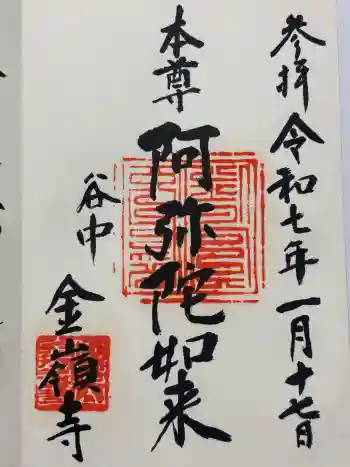 参拝 令和七年一月十七日
本尊 阿弥陀如来
谷中 金嶺寺